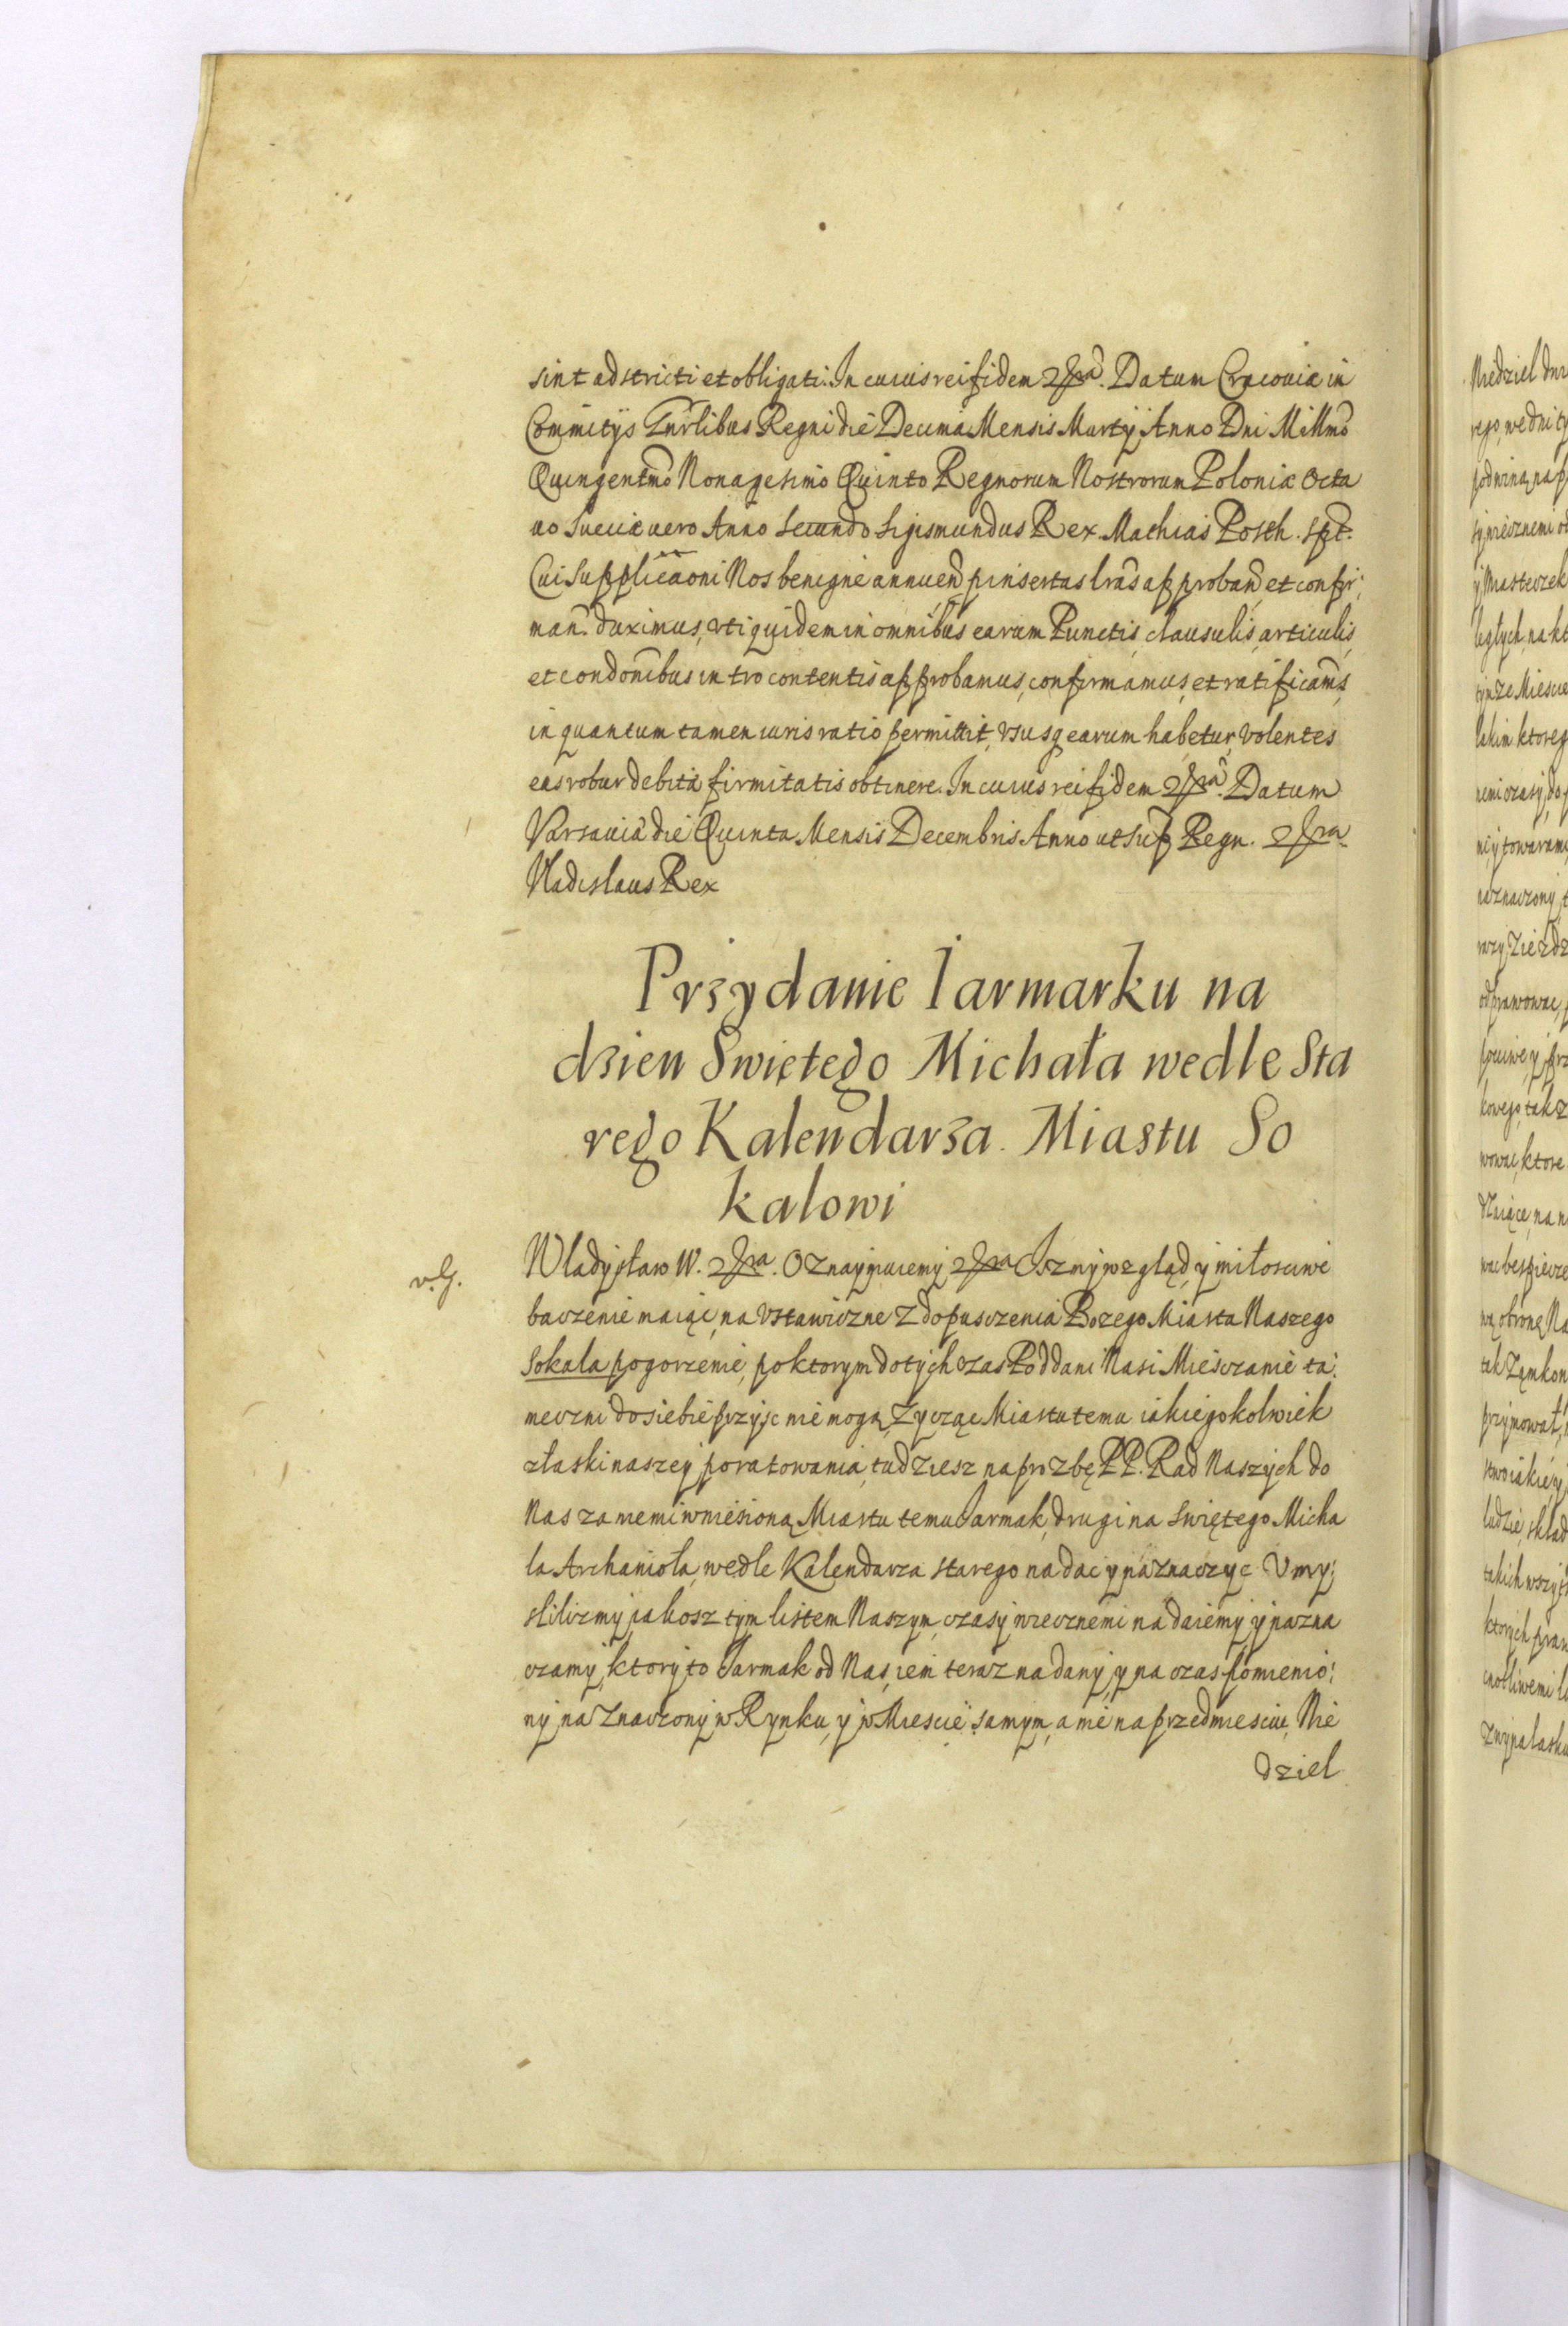 sint adstricti et obligati. In cuius rei fidem &ra. Datum Cracoviæ in
Commitÿs Gnrlibus Regni die Decima Mensis Martÿ Anno Dni Millmo
Quingentmo Nonagesimo Quinto Regnorum Nostrorum Poloniæ Octa
uo Sueciæ uero Anno Secundo Sigismundus Rex. Mathias Posth. spt.
Cui Supplicaoni Nos benigne annuen, pinsertas lras approban, et confir:
man. duximus, vti quidem in omnibus earum Punctis, clausulis, articulis,
et condonibus intro contentis approbamus, confirmamus, et ratificams,
in quantum tamen iuris ratio permittit, vsusq earum habetur, volentes
eas robur debitæ firmitatis obtinere. In cuius rei fidem &ra. Datum
Varsauiæ die Quinta Mensis Decembris Anno ut sup Regn. &ra.
Vladislaus Rex
Przydanie Iarmarku na
dzien Swiętego Michała wedle Sta
rego Kalendarza. Miastu So
kalowi
v.G.
Władysław IV. &ra. Oznaymuiemy &ra Isz my wzgląd y miłosciwe
baczenie maiąc, na vstawiczne z dopusczenia Bozego Miasta Naszego
Sokala pogorzenie, po ktorym dotychczas Poddani Nasi Miesczanie ta:
meczni do siebie przyjsc nie mogą, Zycząc Miastu temu iakiegokolwiek
z łaski naszey poratowania, tudziesz na prozbę PP. Rad Naszych do
Nas za niemi wniesioną, Miastu temu Jarmak, drugi na Swiętego Micha
la Archanioła, wedle Kalendarza starego nadac y naznaczyc Vmy:
slilizmy, jakosz tym listem Naszym, czasy wiecznemi nadaiemy, y nazna
czamy, ktory to Jarmak od Nas, ieṅ teraz nadany, y na czas pomienio:
ny naznaczony w Rynku, y w Miescie samym, a nie na przedmiesciu, Nie
dziel